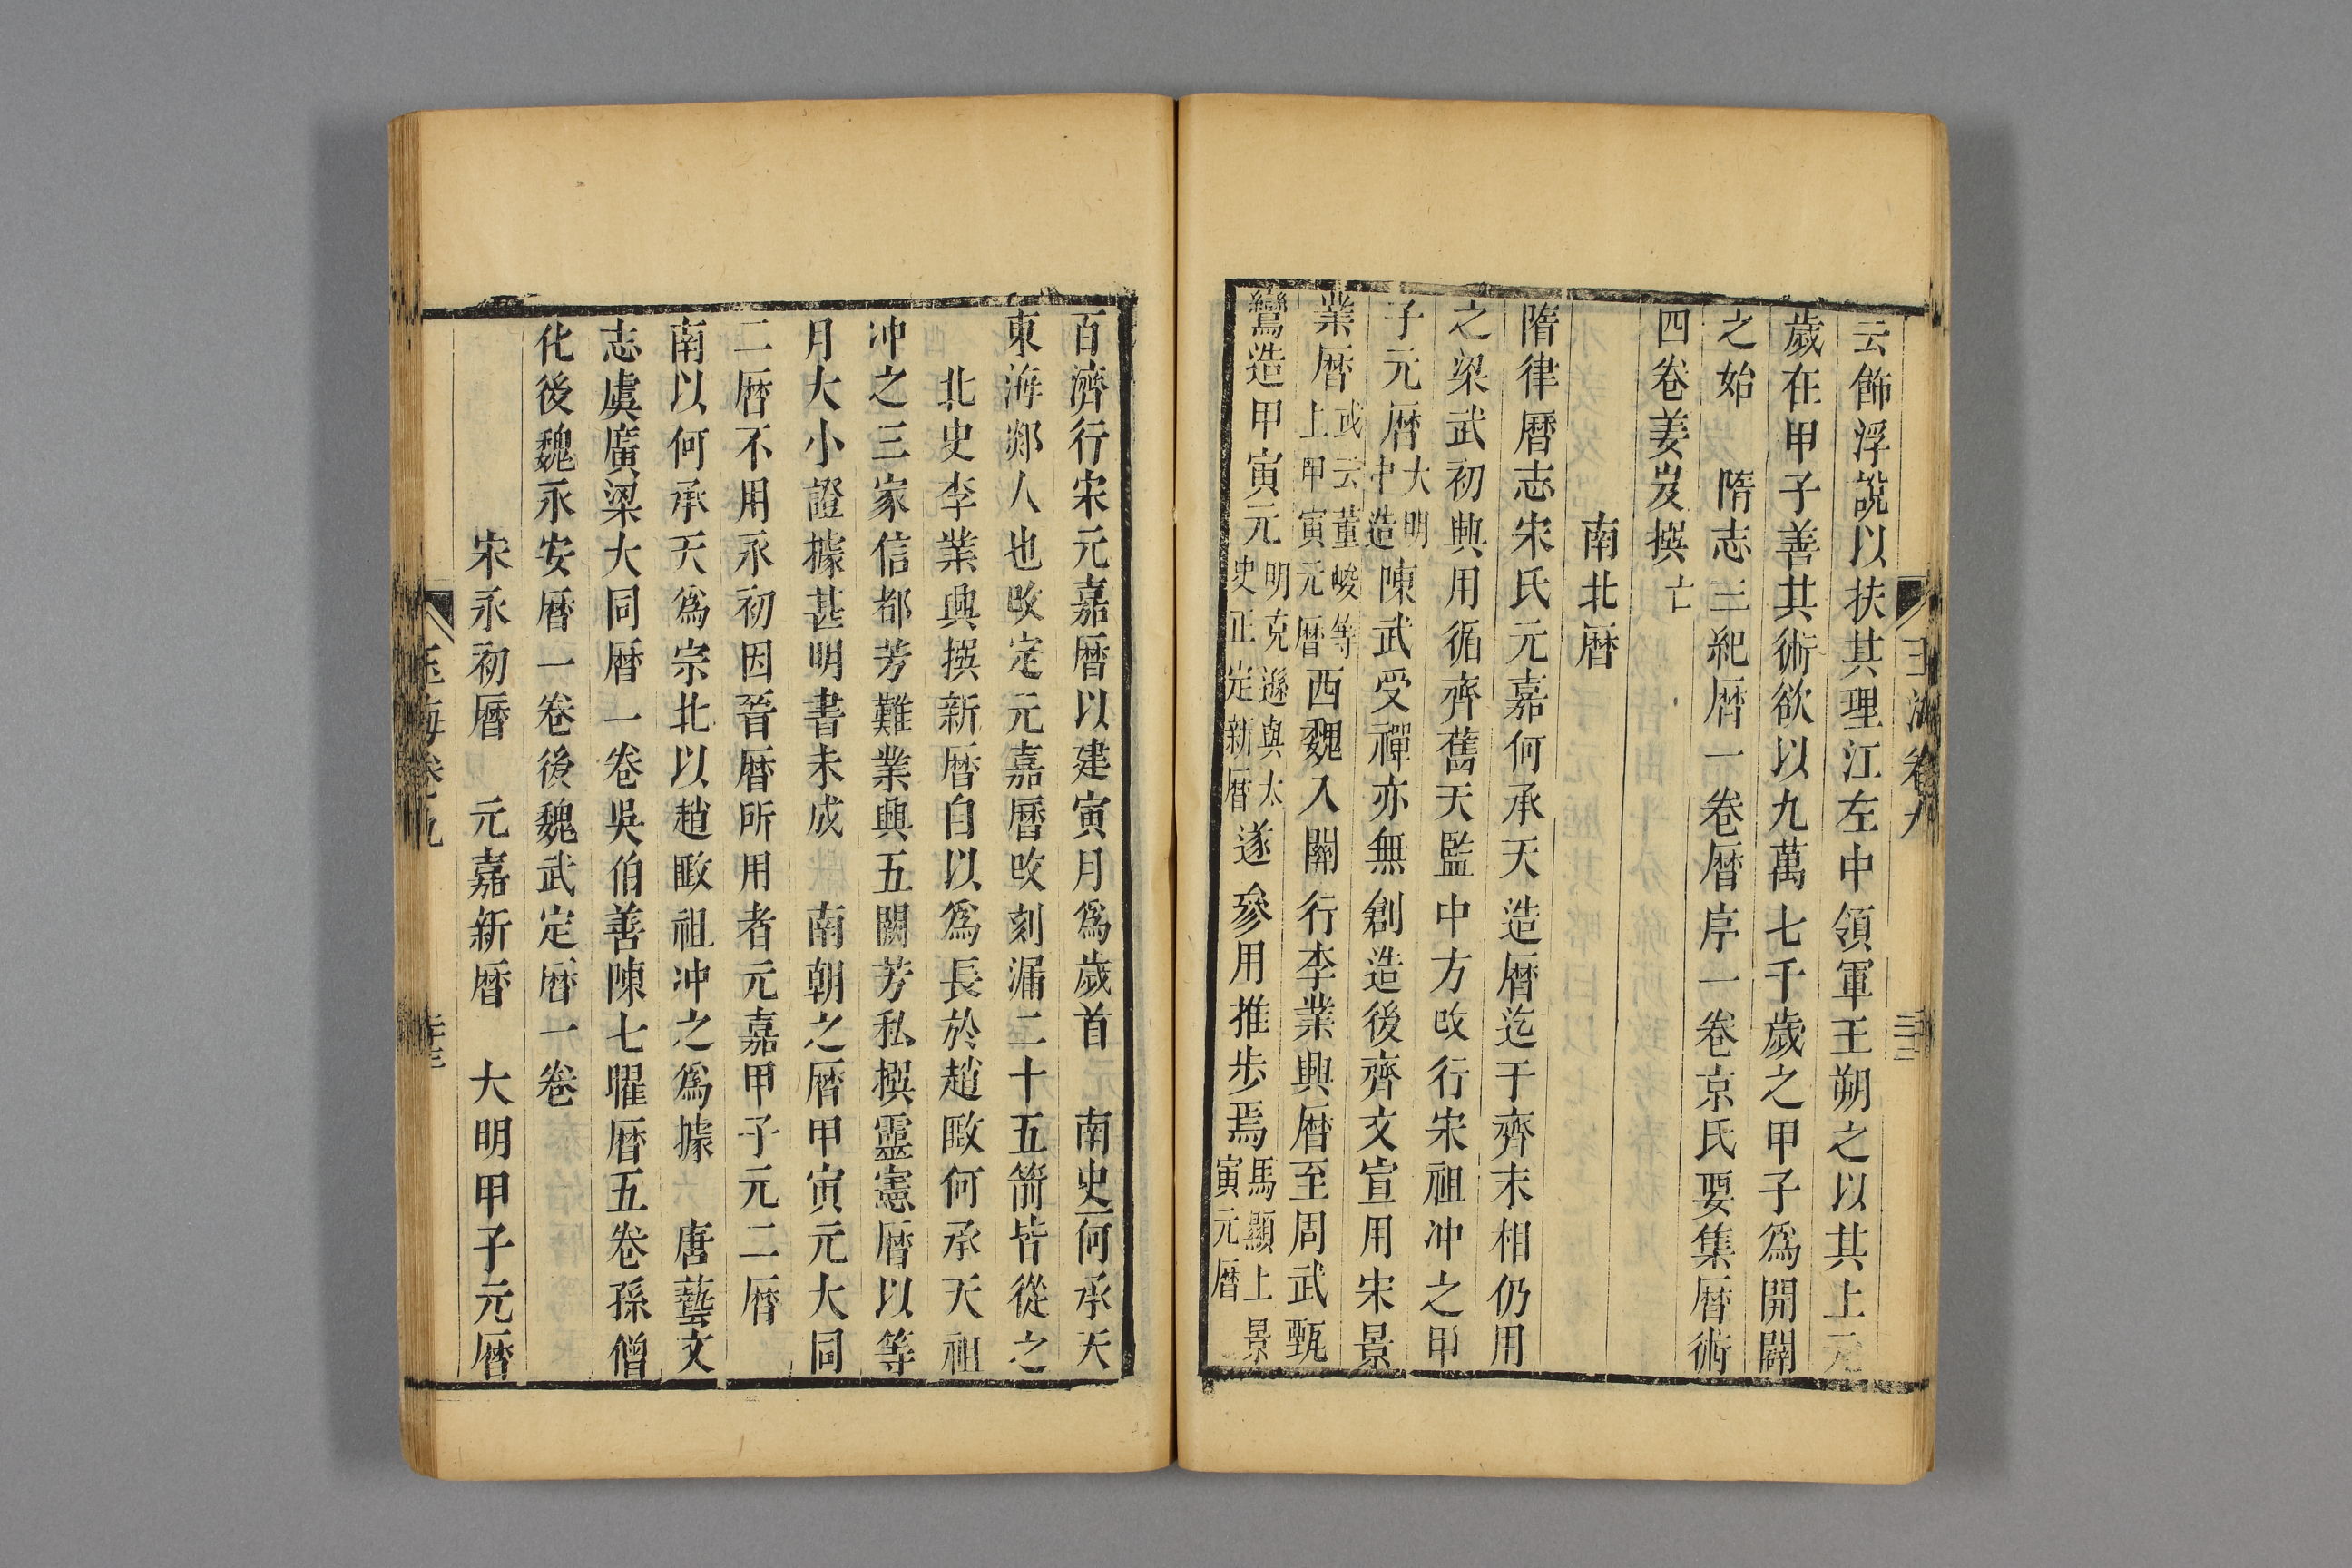 云飾浮說以扶其理江左中領軍王朔之以其上元
歲在甲子善其術欲以九萬七千歲之甲子爲開闢
之始　隋志三紀曆一卷曆序一卷京氏要集曆術
四卷姜岌撰亡
南北曆
隋律曆志宋氏元嘉何承天造曆迄于齊末相仍用
之梁武初興用循齊舊天監中方改行宋祖冲之甲
子元曆大明中造陳武受禪亦無創造後齊文宣用宋景
業曆或云董峻等上甲寅元曆西魏入關行李業興曆至周武甄
鸞造甲寅元明克遜與太史正定新曆遂參用推步焉馬顯上景寅元曆
百濟行宋元嘉曆以建寅月爲歲首　南史何承天
東海郯人也改定元嘉曆改刻漏二十五箭皆從之
北史李業興撰新曆自以爲長於趙𢾺何承天祖
冲之三家信都芳難業興五闕芳私撰靈憲曆以等
月大小證據甚明書未成　南朝之曆甲寅元大同
二曆不用永初因晉曆所用者元嘉甲子元二曆
南以何承天爲宗北以趙𢾺祖冲之爲據　唐藝文
志虞廣梁大同曆一卷吳伯善陳七曜曆五卷孫僧
化後魏永安曆一卷後魏武定曆一卷
宋永初曆　元嘉新曆　大明甲子元曆